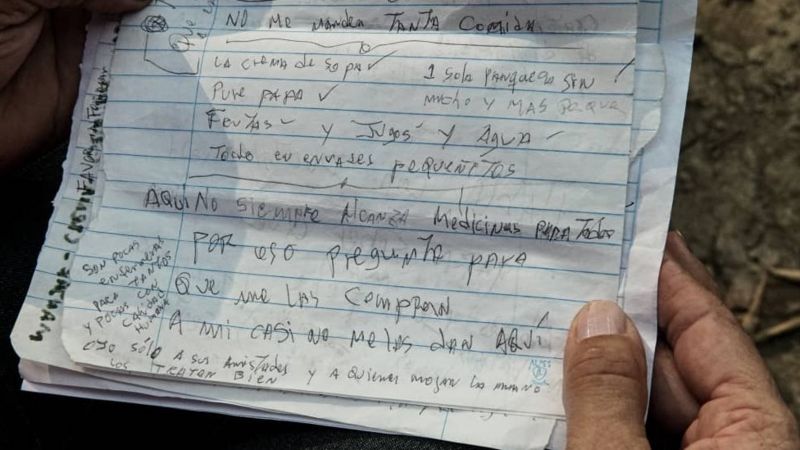 Que
NO Me Manden TANTA Comida
LA CREMA de SOPA ✓
PURE PAPA ✓
1 Sola Panqueca SIN
mucho y MAS peque
FRUTAS ✓ y Jugos ✓ y AGUA ✓
Todo en envases pequeñitos
AQUI NO siempre Alcanza Medicinas PARA Todos
POR eso pregunta para
Que me las compran
A mi casi no me las dan AQUÍ
SON POCAS
enfermeras
PARA TANTOS
y POCAS CON
CALIDAD
HUMANA
OJO SÓLO A SUS AMISTADES
LOS TRATAN BIEN y A quienes mojan la mano